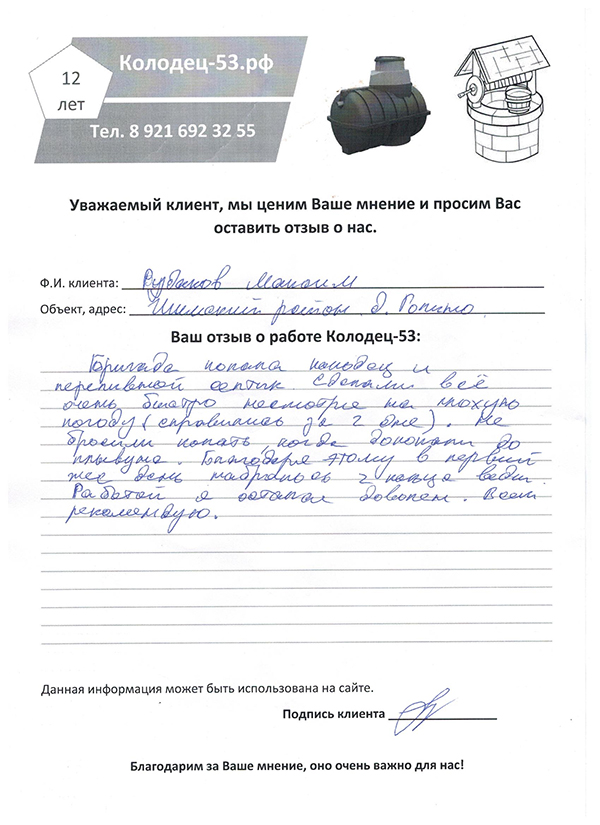 Колодец-53.рф
12
лет
Тел. 8 921 692 32 55
Уважаемый клиент, мы ценим Ваше мнение и просим Вас
оставить отзыв о нас.
Ф.И. клиента: Максим
Объект, адрес: Шимский район д.
Ваш отзыв о работе Колодец-53:
Бригада копала колодец и
переливной септик. Сделали всё
очень быстро несмотря на плохую
погоду (справились за 2 дня). Не
бросили копать, когда докопали до
плывуна. Благодаря этому в первый
же день набралось 2 кольца воды.
Работой я остался доволен. Всем
рекомендую.
Данная информация может быть использована на сайте.
Подпись клиента
Благодарим за Ваше мнение, оно очень важно для нас!